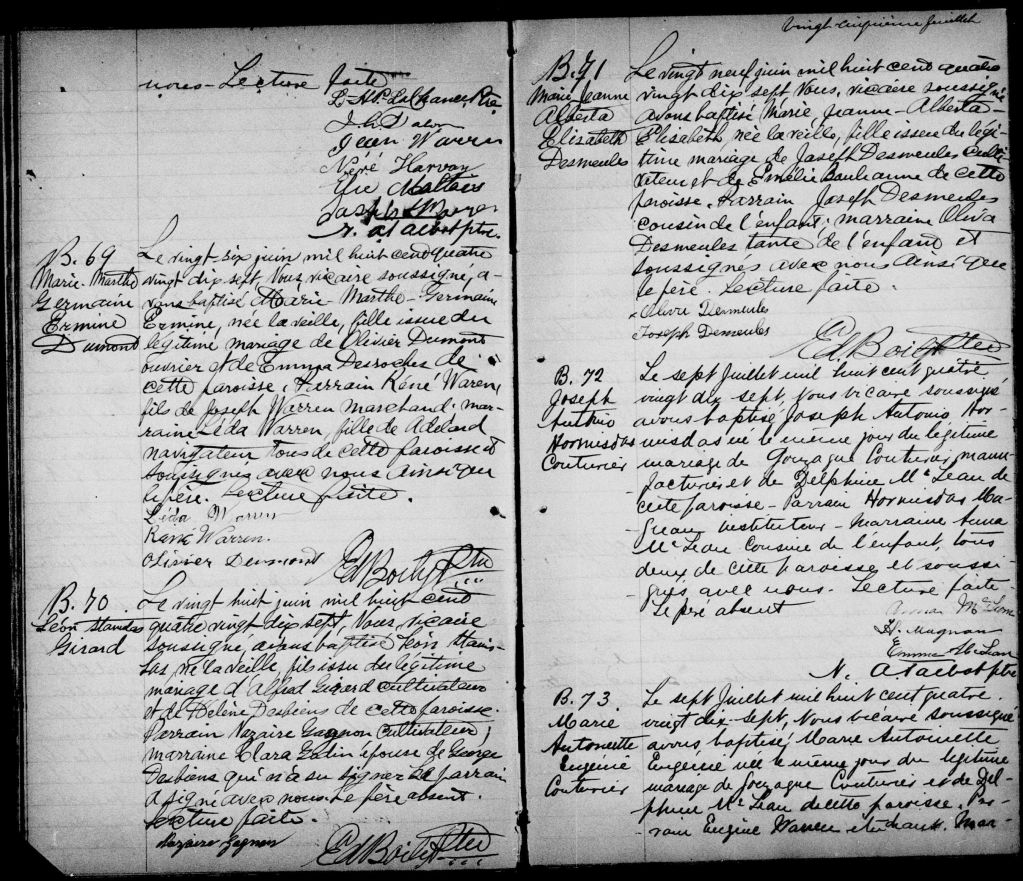 nous - Lecture faite
J. L. Dalon
Jean Warren
Néré Harvay
B. 69
Marie-Marthe
Germaine
Ermine
Dumond
Le vingt six juin mil huit cent quatre
vingt dix sept Nous vicaire soussigné, a-
vons baptisé Marie-Marthe-Germaine
Ermine, née la veille, fille issue du
légitime mariage de Olivier Dumont
ouvrier et de Emma Desroches de
cette paroisse, Parrain René Waren
fils de Joseph Warren Marchand. mar-
raine Léda Warren, fille de Adelard
navigateur tous de cette paroisse et
soussignés avec nous ainsi que
le père. Lecture faite.
Léda Warren
René Warren.
Olivier Demond
Ed Boily Ptre
B. 70
Léon Stanislas
Girard
Le vingt huit juin mil huit cent
quatre vingt dix sept, Nous, vicaire
soussigné, avons baptisé Léon Stanis-
las, né la veille, fils issu du légitime
mariage d'Alfred Girard cultivateur
et de Délène Desbiens de cette paroisse.
Parrain Nazaire Gagnon cultivateur,
marraine Clara epouse de George
Desbiens qui n'a su signer Le parrain
a signé avec nous. Le père absent.
Lecture faite.
Nazaire Gagnon
Ed Boily Ptre
Vingt cinquième feuillet
B. 71
Marie-Jeanne
Alberta
Elisabeth
Desmeules
Le vingt neuf juin mil huit cent quatre
vingt dix sept Nous, vicaire soussigné
avons baptisé Marie Jeanne-Alberta-
Elisabeth, née la veille, fille issue du légi-
time mariage de Joseph Desmeules culti-
vateur et de Emélie Boulianne de cette
paroisse. Parrain Joseph Desmeules
cousin de l'enfant, marraine Oliva
Desmeules tante de l'enfant et
soussignés avec nous ainsi que
le père. Lecture faite.
Oliva Desmeules
Joseph Demeules
Ed Boily Ptre
B. 72
Joseph
Antonio
Hormisdas
Couturier
Le sept Juillet mil huit cent quatre
vingt dix sept, Nous vicaire soussigné
avons baptisé Joseph Antonio Hor-
misdas né le même jour du légitime
mariage de Gonzague Couturier manu-
facturier et de Delphine McLean de
cette paroisse - Parrain Hormisdas Ma-
gnan instituteur - Marraine Anna
McLean Cousine de l'enfant, tous
deux de cette paroisse et soussi-
gnés avec nous. Lecture faite-
Le père absent
Anna McLean
H. Magnan
Emma McLean
N. A Talbot ptre
B. 73.
Marie
Antoinette
Eugénie
Couturier
Le sept Juillet mil huit cent quatre.
vingt dix-sept, Nous vicaire soussigné
avons baptisé Marie Antoinette
Eugénie née le même jour du légitime
mariage de Gonzague Couturier et de Del-
phine McLean de cette paroisse. Par-
rain Eugène Warren marchand. Mar-